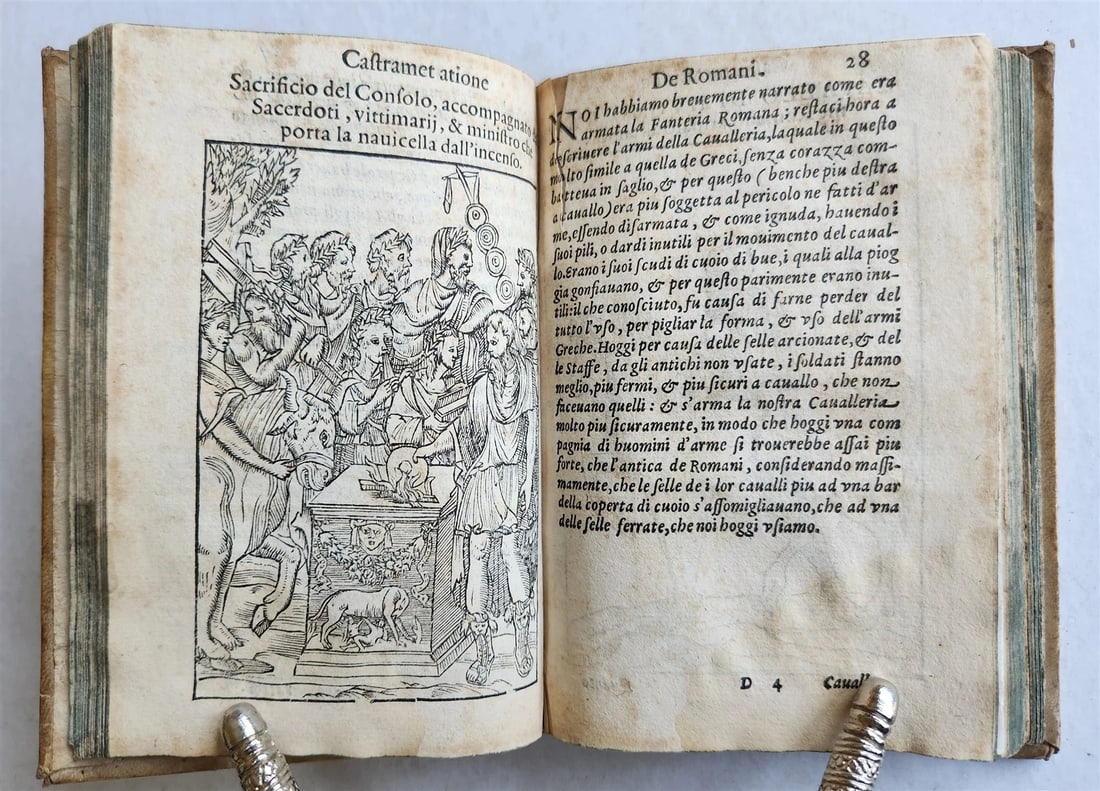 Castramet atione
Sacrificio del Consolo, accompagnato
Sacerdoti, vittimarij, & ministro che
porta la nauicella dall'incenso.
De Romani. 28
NOI habbiamo breuemente narrato come era
armata la Fanteria Romana; restaci hora a
descriuere l'armi della Caualleria, laquale in questo
molto simile a quella de Greci, senza corazza com-
batteua in saglio, & per questo (benche piu destra
a cauallo) era piu soggetta al pericolo ne fatti d'ar
me, essendo disarmata, & come ignuda, hauendo i
suoi pili, o dardi inutili per il mouimento del caual-
lo. Erano i suoi scudi di cuoio di bue, i quali alla piog
gia gonfiauano, & per questo parimente erano inu-
tili: il che conosciuto, fu causa di farne perder del
tutto l'vso, per pigliar la forma, & vso dell'armi
Greche. Hoggi per causa delle selle arcionate, & del
le Staffe, da gli antichi non vsate, i soldati stanno
meglio, piu fermi, & piu sicuri a cauallo, che non
faceuano quelli: & s'arma la nostra Caualleria
molto piu sicuramente, in modo che hoggi vna com
pagnia di huomini d'arme si trouerebbe assai piu
forte, che l'antica de Romani, considerando massi-
mamente, che le selle de i lor caualli piu ad vna bar
della coperta di cuoio s'assomigliauano, che ad vna
delle selle ferrate, che noi hoggi vsiamo.
D 4 Cauall